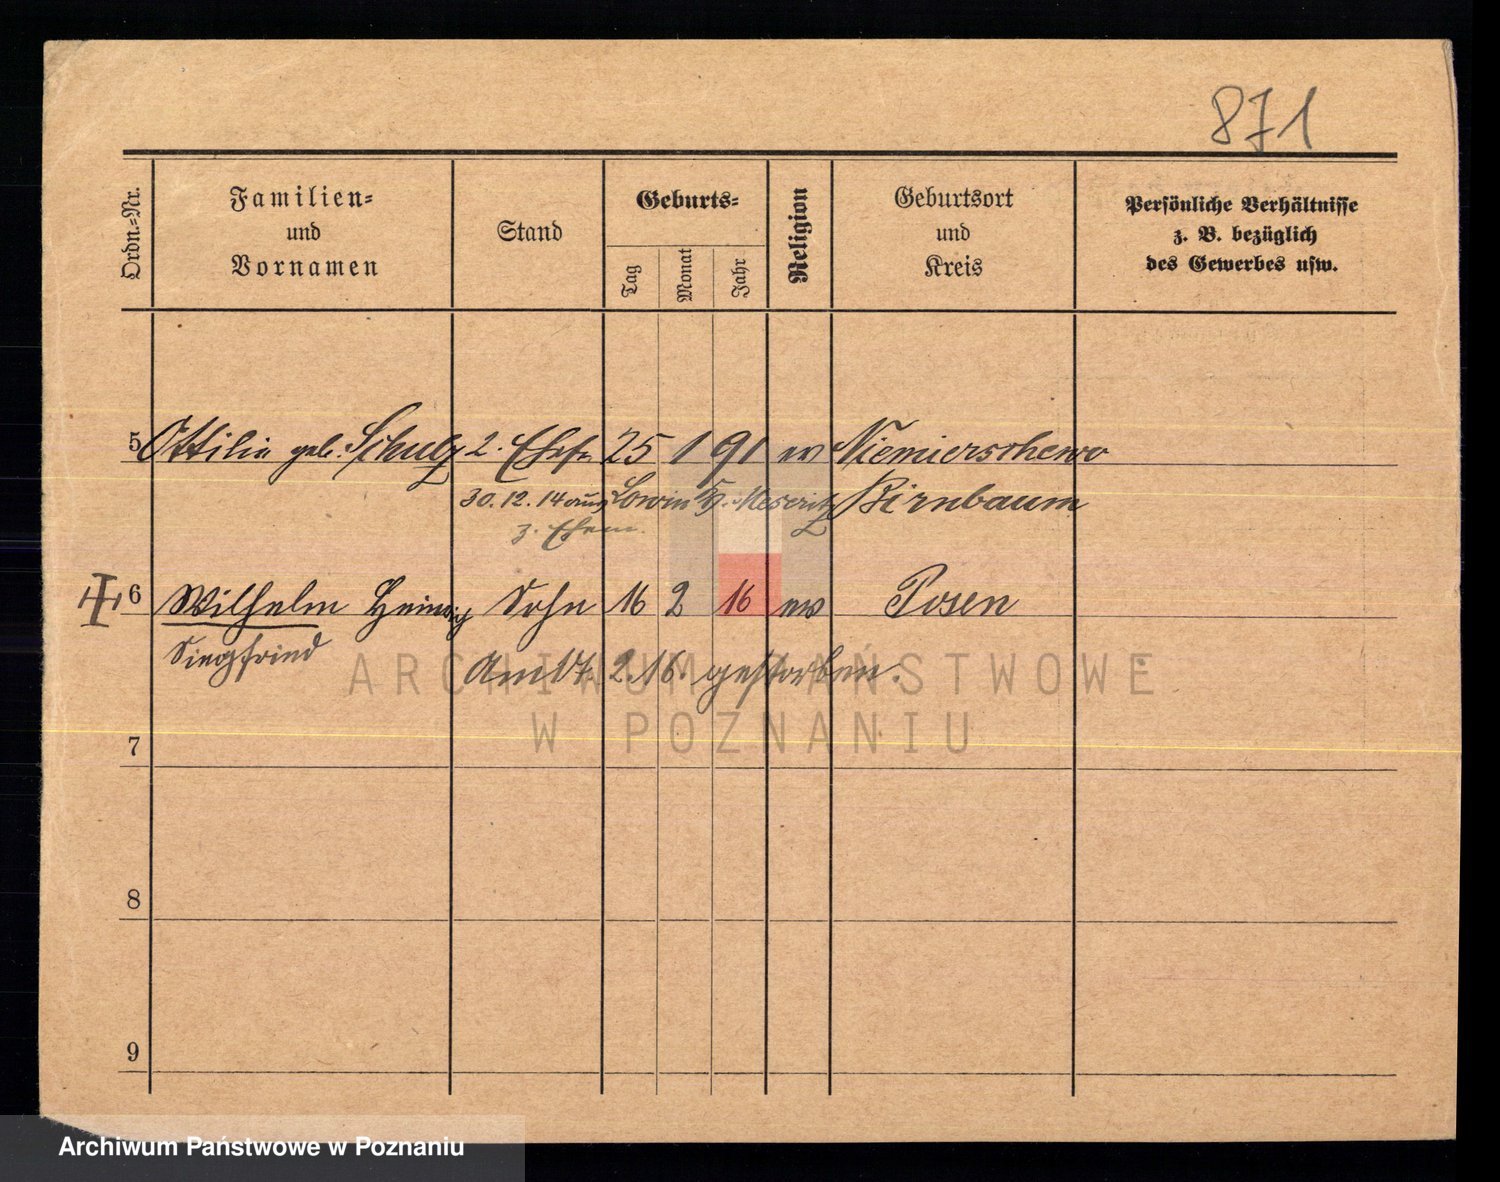 871
Ordn.-Nr.
Familien-
und
Vornamen
Stand
Geburts-
Tag
Monat
Jahr
Religion
Geburtsort
und
Kreis
Persönliche Verhältnisse
z. B. bezüglich
des Gewerbes usw.
5 Ottilie geb. Schulz 2. Ehefr 25 1 91 ev Niemierschewo
30.12.14 aus Lowin Kr. Meseritz Birnbaum
z. Ehem.
6 Wilhelm Heinrich Sohn 16 2 16 ev Posen
Siegfried
Am 17. 2. 16. gestorben.
7
8
9
ARCHIWUM PAŃSTWOWE
W POZNANIU
Archiwum Państwowe w Poznaniu